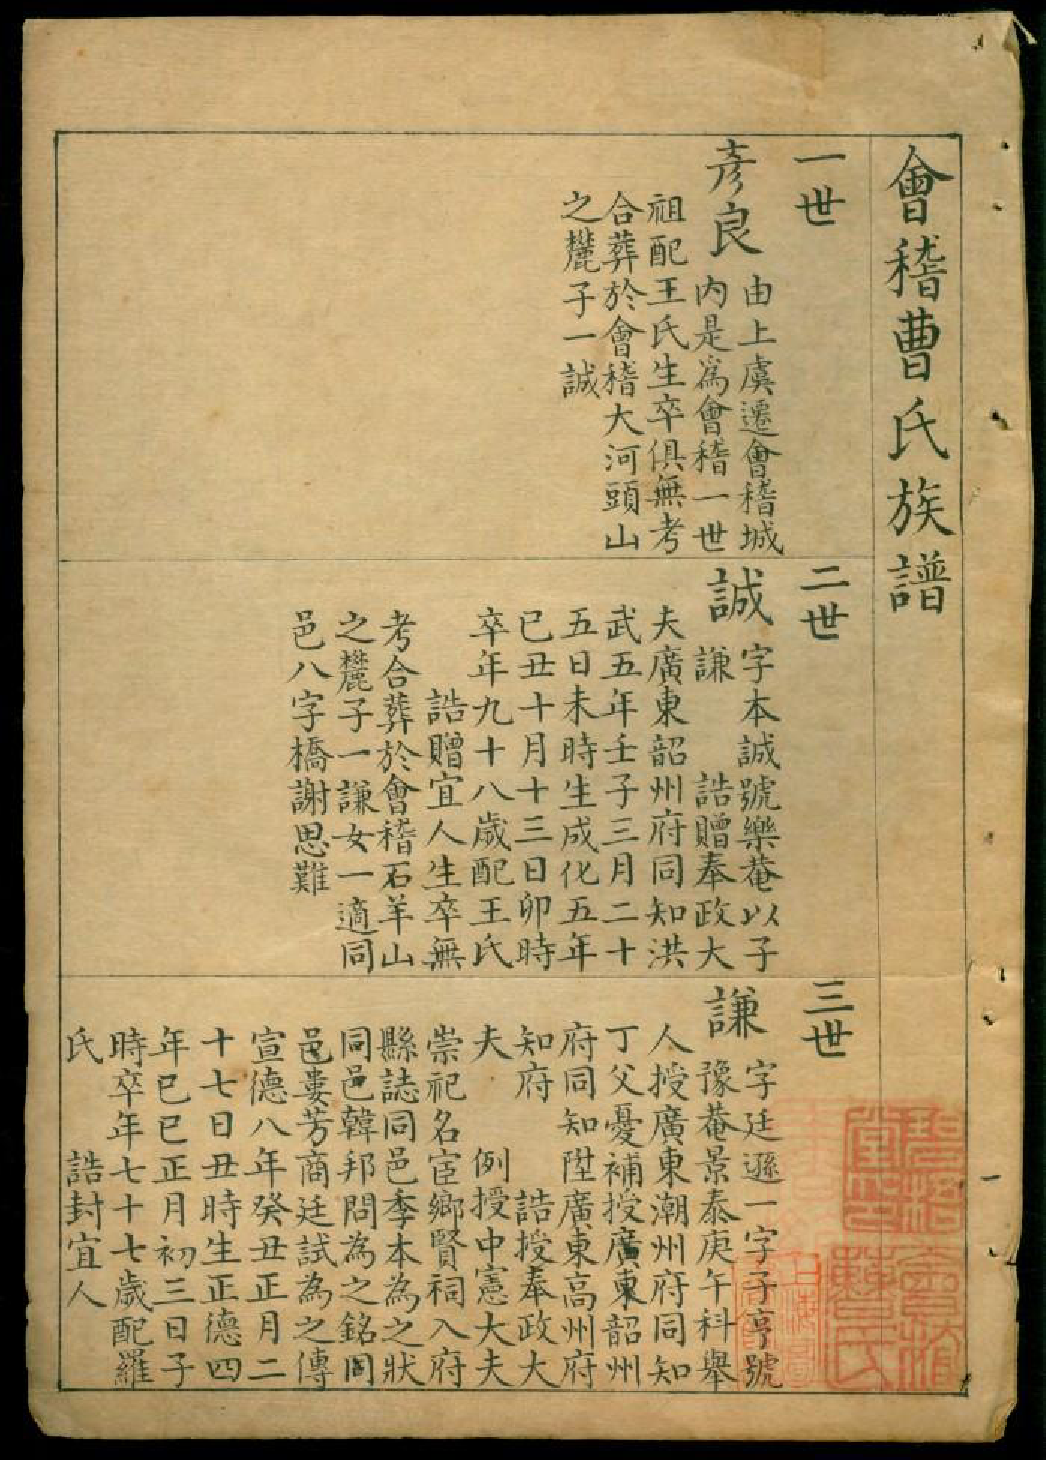 會稽曹氏族譜
一世
彥良
由上虞遷會稽城
內是為會稽一世
祖配王氏生卒俱無考
合葬於會稽大河頭山
之麓子一誠
二世
誠
字本誠號樂菴以子
謙 誥贈奉政大
夫廣東韶州府同知洪
武五年壬子三月二十
五日未時生成化五年
已丑十月十三日卯時
卒年九十八歲配王氏
誥贈宜人生卒無
考合葬於會稽石羊山
之麓子一謙女一適同
邑八字橋謝思難
三世
謙
字廷遜一字子亨號
豫菴景泰庚午科舉
人授廣東潮州府同知
丁父憂補授廣東韶州
府同知陞廣東高州府
知府 誥授奉政大
夫 例授中憲大夫
崇祀名宦鄉賢祠入府
縣誌同邑季本為之狀
同邑韓邦問為之銘同
邑婁芳商廷試為之傳
宣德八年癸丑正月二
十七日丑時生正德四
年已巳正月初三日子
時卒年七十七歲配羅
氏 誥封宜人